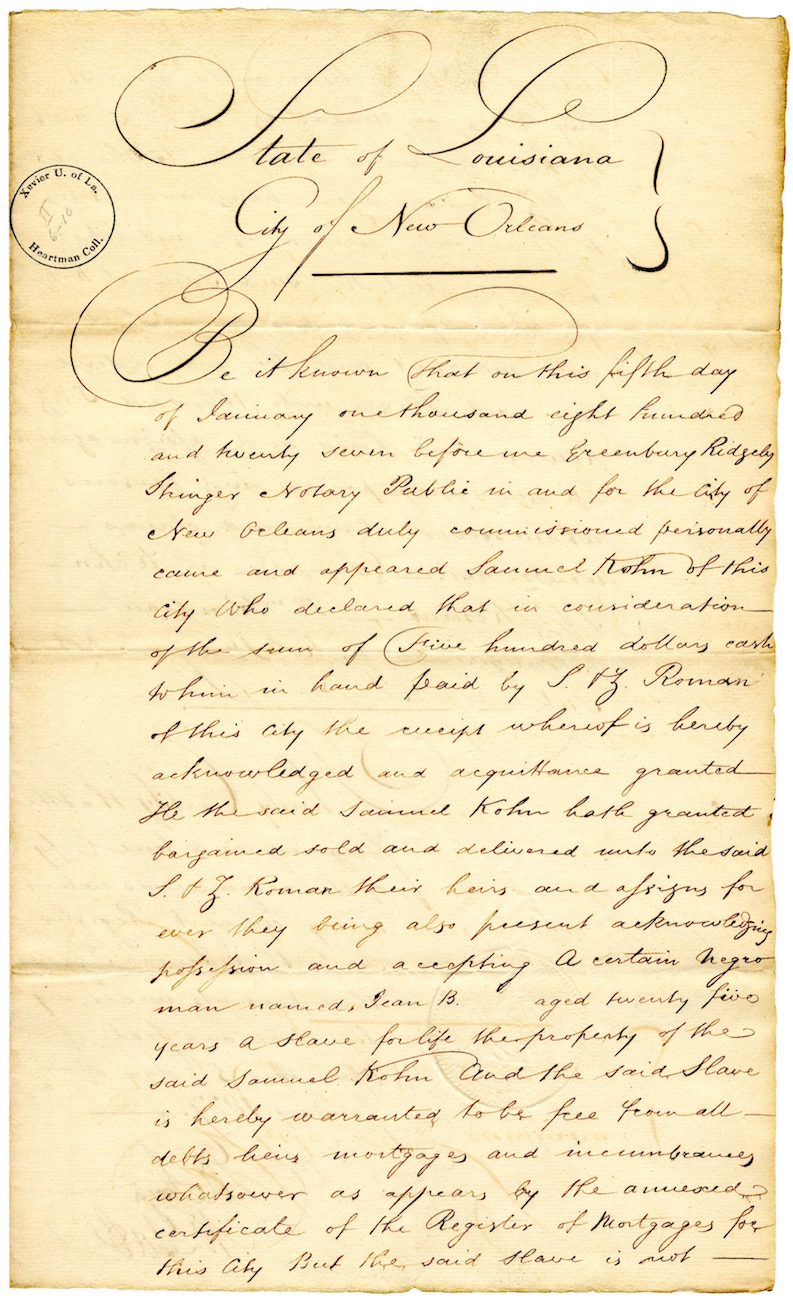 State of Louisiana
City of New Orleans
Xavier U. of La.
II
6-16
Heartman Coll.
Be it known that on this fifth day
of January one thousand eight hundred
and twenty seven before me Greenbury Ridgely
Stringer Notary Public in and for the City of
New Orleans duly commissioned personally
came and appeared Samuel Kohn of this
City Who declared that in consideration
of the sum of Five hundred dollars cash
to him in hand paid by S. & Z. Roman
of this City the receipt whereof is hereby
acknowledged and acquittance granted
He the said Samuel Kohn hath granted
bargained sold and delivered unto the said
S. & Z. Roman their heirs and assigns for
ever they being also present acknowledging
possession and accepting A certain Negro
man named, Jean B. aged twenty five
years a slave for life the property of the
said Samuel Kohn And the said Slave
is hereby warranted to be free from all
debts liens mortgages and incumbrances
whatsoever as appears by the annexed
certificate of the Register of Mortgages for
this City But the said slave is not